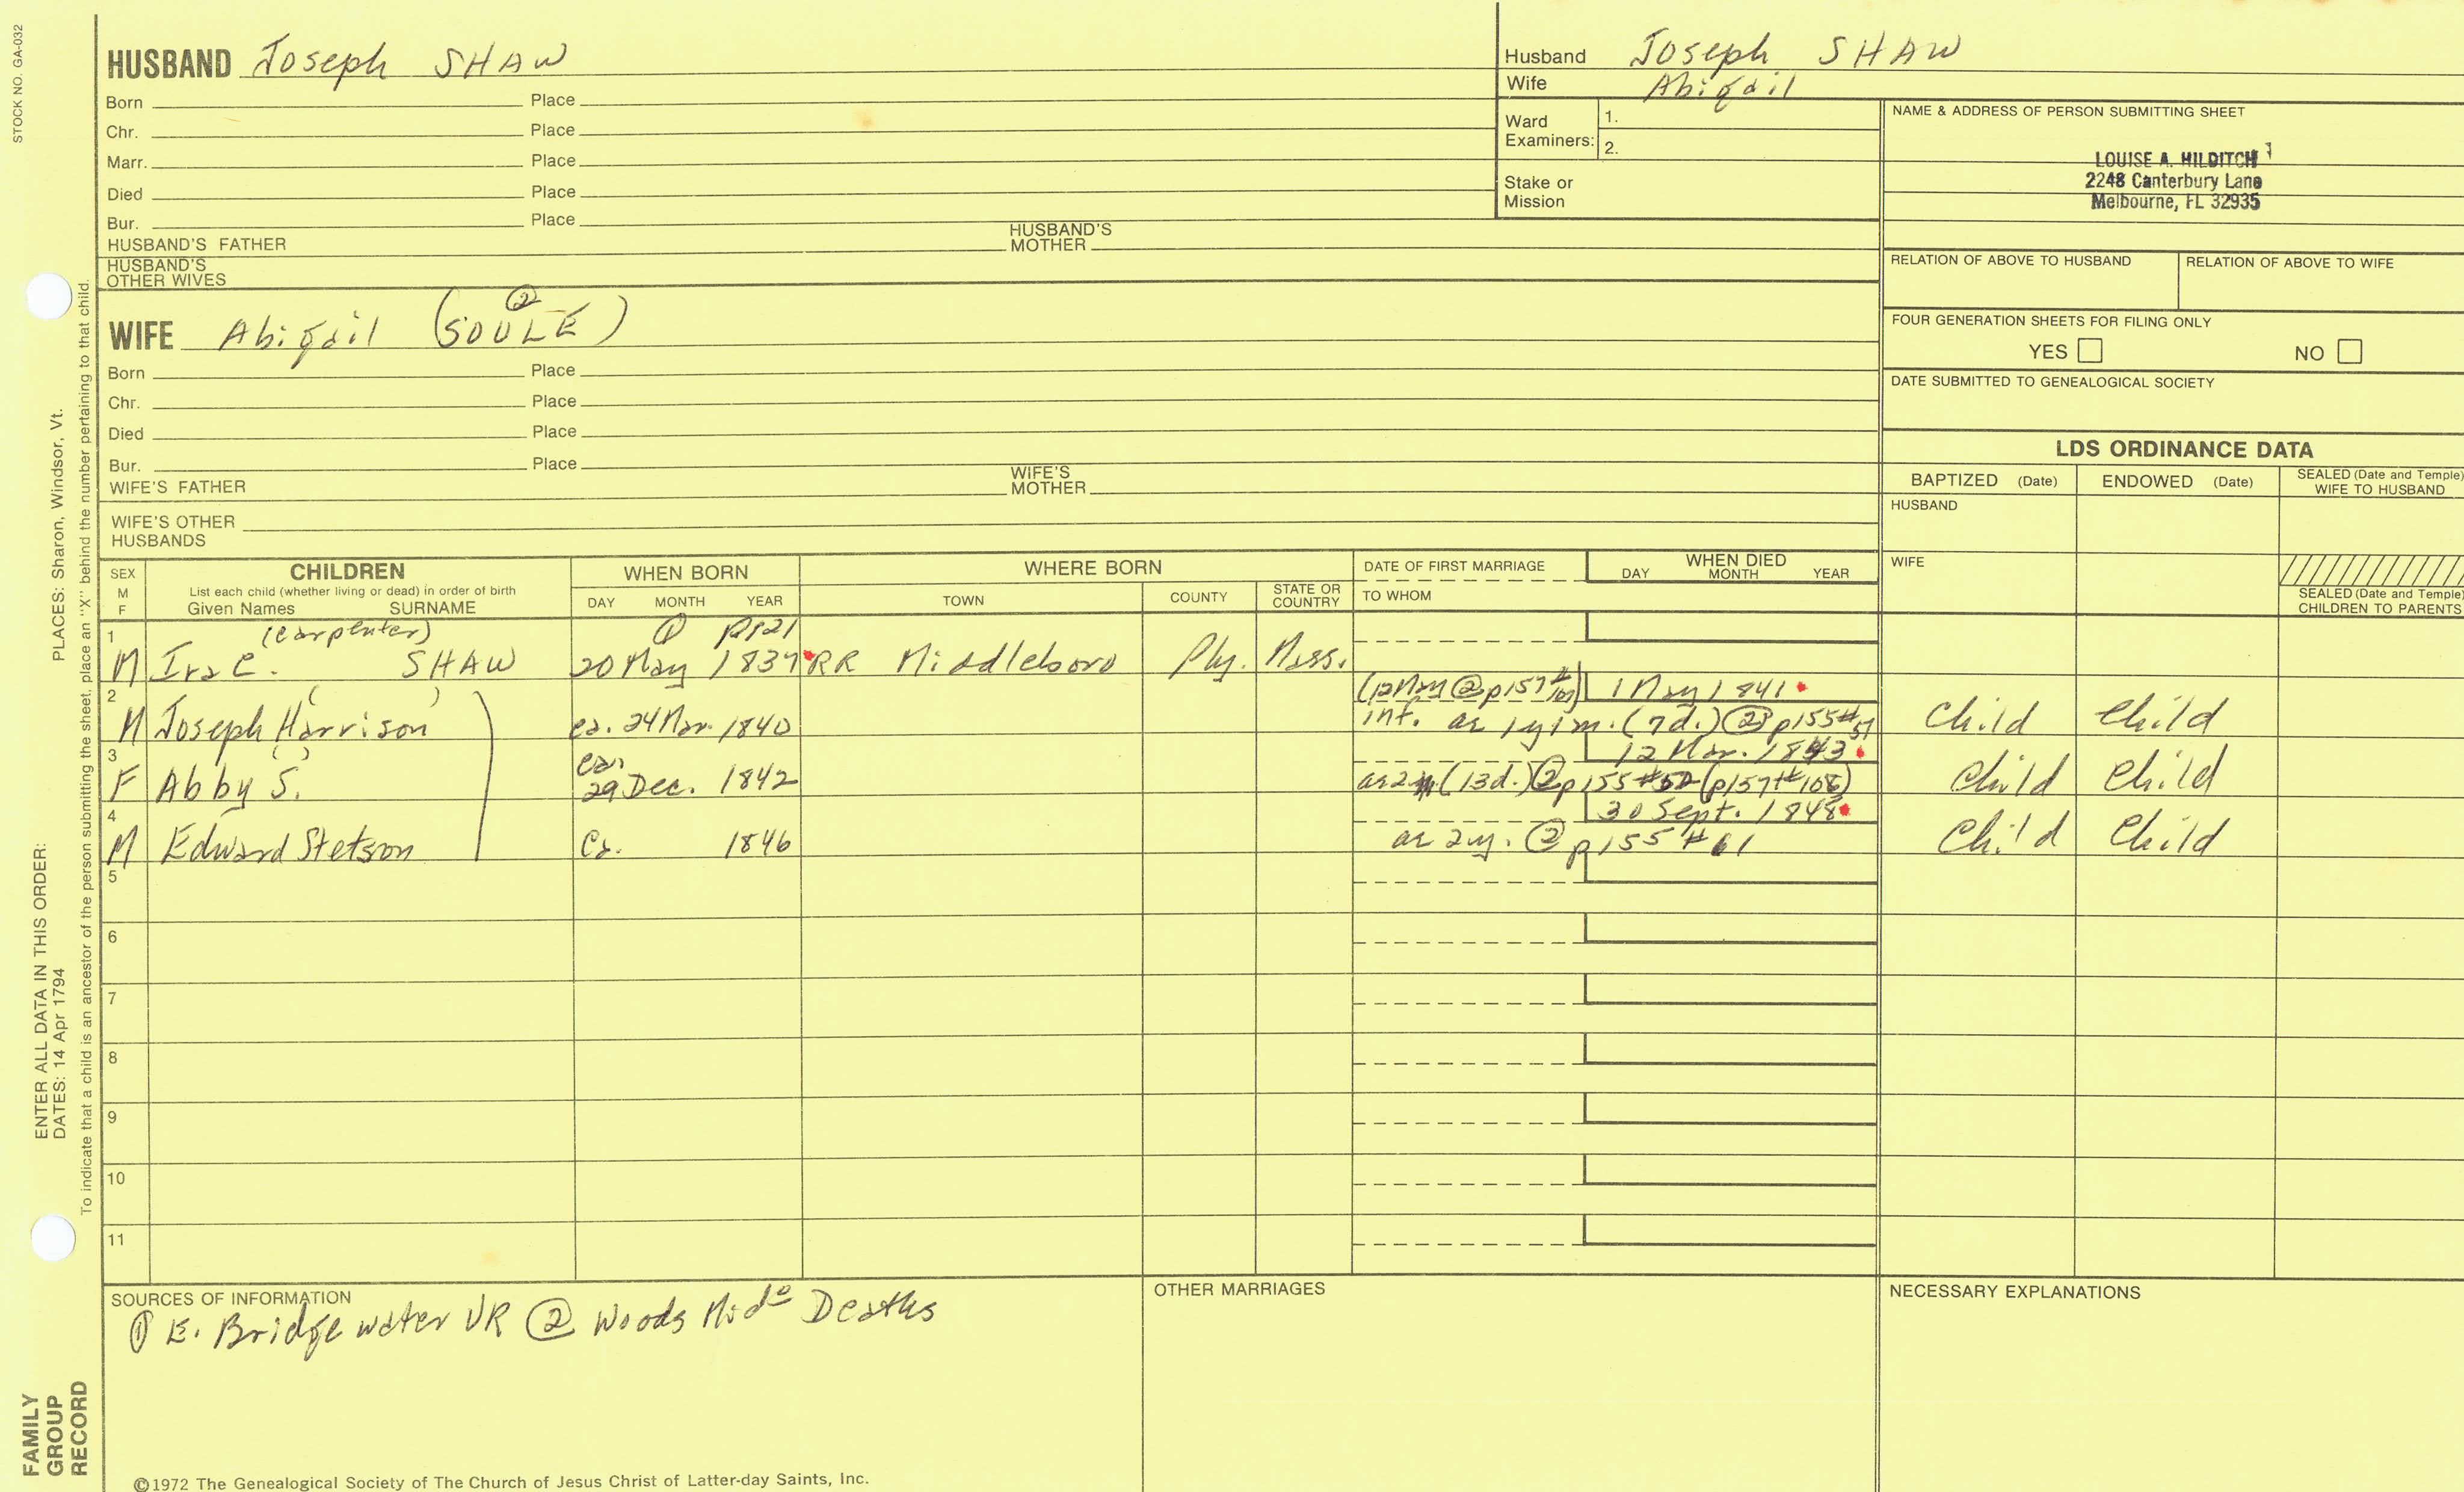 STOCK NO. GA-032
HUSBAND Joseph SHAW
Born Place
Chr. Place
Marr. Place
Died Place
Bur. Place
HUSBAND'S FATHER HUSBAND'S MOTHER
HUSBAND'S OTHER WIVES
Husband Joseph SHAW
Wife Abigail
Ward Examiners: 1.
2.
Stake or Mission
NAME & ADDRESS OF PERSON SUBMITTING SHEET
LOUISE A. HILDITCH
2248 Canterbury Lane
Melbourne, FL 32935
RELATION OF ABOVE TO HUSBAND RELATION OF ABOVE TO WIFE
FOUR GENERATION SHEETS FOR FILING ONLY
YES NO
DATE SUBMITTED TO GENEALOGICAL SOCIETY
②
WIFE Abigail (SOULE)
Born Place
Chr. Place
Died Place
Bur. Place
WIFE'S FATHER WIFE'S MOTHER
WIFE'S OTHER HUSBANDS
LDS ORDINANCE DATA
BAPTIZED (Date) ENDOWED (Date) SEALED (Date and Temple) WIFE TO HUSBAND
HUSBAND
WIFE
SEALED (Date and Temple) CHILDREN TO PARENTS
SEX M F
CHILDREN
List each child (whether living or dead) in order of birth
Given Names SURNAME
WHEN BORN
DAY MONTH YEAR
WHERE BORN
TOWN COUNTY STATE OR COUNTRY
DATE OF FIRST MARRIAGE
TO WHOM
WHEN DIED
DAY MONTH YEAR
1 (carpenter) ① p121
M Ira C. SHAW 20 May 1837 RR Middleboro Ply. Mass.
2 (12 May @ p157 1 May 1841
M Joseph Harrison ca. 24 Mar. 1840 inf. as 1y 1m. (7d.) ② p155 #51 Child Child
3 ca. 12 Mar. 1843
F Abby S. 29 Dec. 1842 as 2m (13d.) ② p155 #52 (p157 #108) Child Child
4 30 Sept. 1848
M Edward Stetson Ca. 1846 as 2y. ② p155 #61 Child Child
5
6
7
8
9
10
11
SOURCES OF INFORMATION
① E. Bridgewater VR ② Woods Mid° Deaths
OTHER MARRIAGES
NECESSARY EXPLANATIONS
©1972 The Genealogical Society of The Church of Jesus Christ of Latter-day Saints, Inc.
FAMILY
GROUP
RECORD
ENTER ALL DATA IN THIS ORDER:
DATES: 14 Apr 1794 PLACES: Sharon, Windsor, Vt.
To indicate that a child is an ancestor of the person submitting the sheet, place an "X" behind the number pertaining to that child.